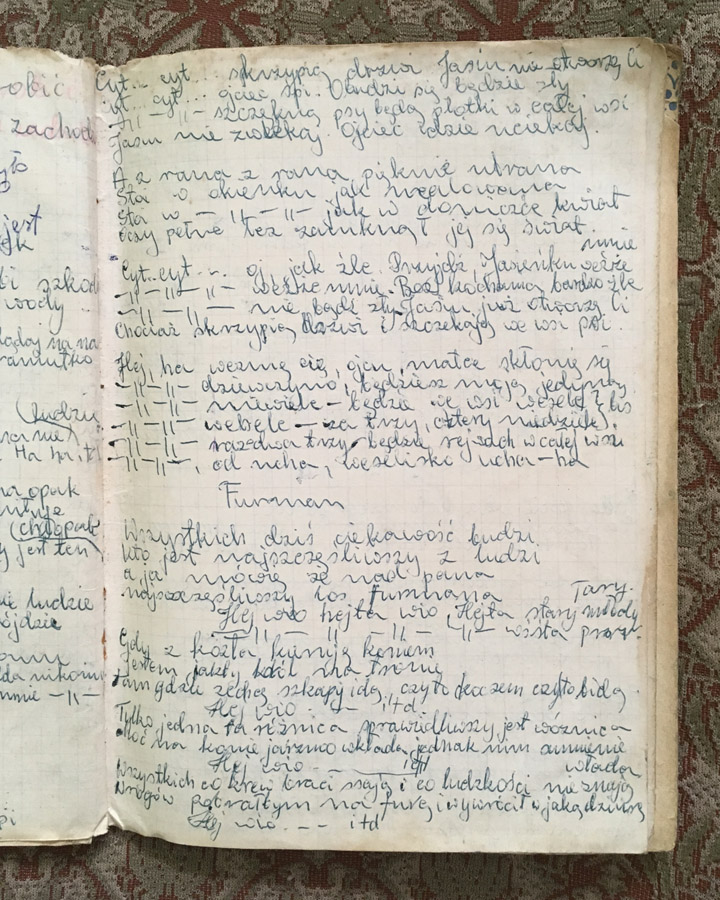 obić
zachod
jest
szkod
wody
ludzie
na opak
jest ten
ludzie
Cyt... cyt... skrzypią drzwi Jasiu nie otworzę Ci
cyt... cyt... ojciec śpi. Obudzi się będzie zły
-〃- -〃- szczekną psy będą plotki w całej wsi
Jasiu nie zwlekaj. Ojciec idzie uciekaj.
A z rana z rana pięknie ubrana
Sta w okienku jak malowana
Sta w -〃- -〃- jak w doniczce kwiat
oczy pełne łez zamknął jej się świat.
Cyt..cyt... oj, jak źle. Przyjdź Jasieńku weźże mnie
-〃- -〃- weźże mnie. Bo kochamy bardzo źle
-〃- -〃- nie bądź zły Jasiu już otworzę Ci
Chociaż skrzypią drzwi i szczekają we wsi psi.
Hej, ha wezmę cię, ojcu, matce skłonię się
-〃- -〃- dziewczyno, będziesz moją jedyną
-〃- -〃- niewiele - będzie we wsi wesele
-〃- -〃- wesele - za trzy, cztery niedziele
-〃- -〃- raz dwa trzy - będzie rejwach w całej wsi
-〃- -〃-, od ucha, weselisko ucha - ha
Furman
Wszystkich dziś ciekawość budzi
kto jest najszczęśliwszy z ludzi
a ja mówię że nad pana
najszczęśliwszy los furmana
Hej wio hejta wio, Hejta stary młody
-〃- -〃- -〃- -〃- wista prr
Gdy z kozła kieruję koniem
Jestem jakby król na tronie
Tam gdzie zechcę szkapy idą, czy to deszczem czy to bidą
Hej wio. - - itd.
Tylko jedna ta różnica sprawiedliwszy jest woźnica
choć na konie jarzmo wkłada, jednak nim sumienie włada
Hej wio - - itd
Wszystkich co krew braci ssają i co ludzkości nie znają
Wrogów pobrałbym na furę i wywrócił w jaką dziurę
Hej wio. - - itd